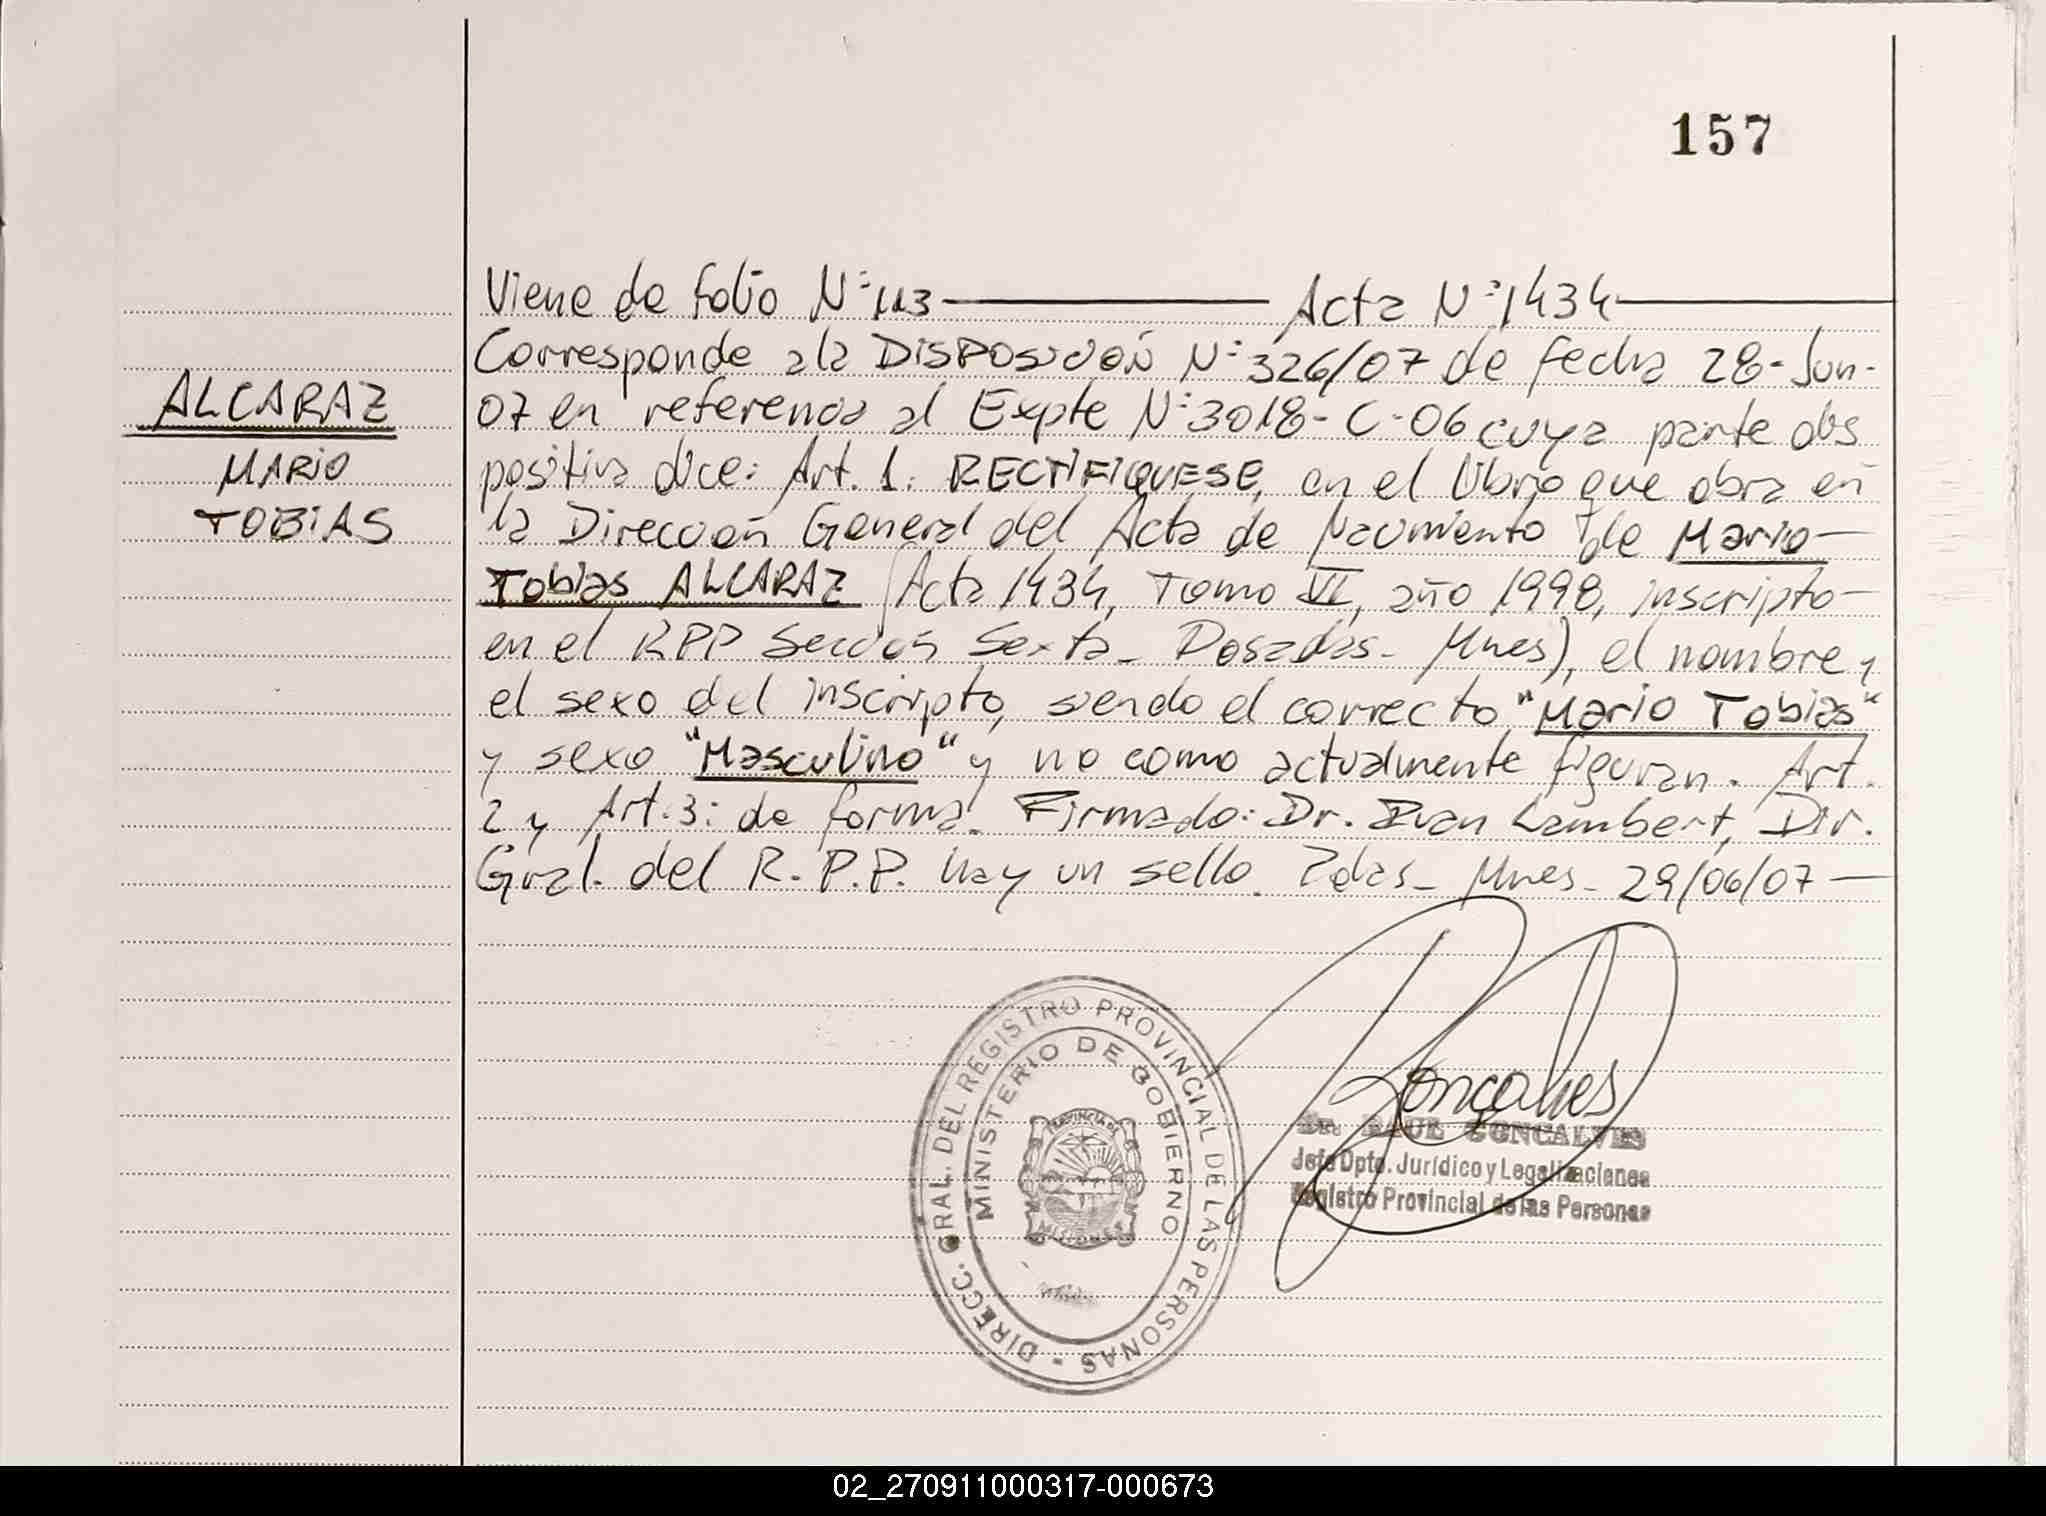 157
Viene de folio N° 113 Acta N° 1434
ALCARAZ
MARIO
TOBIAS
Corresponde a la DISPOSICIÓN N° 326/07 de fecha 28-Jun-
07 en referencia al Expte N° 3018-C-06 cuya parte dis
positiva dice: Art. 1. RECTIFIQUESE, en el libro que obra en
la Dirección General del Acta de Nacimiento de Mario
Tobias ALCARAZ (Acta 1434, Tomo VI, año 1998, inscripto
en el RPP Sección Sexta - Posadas - Mnes), el nombre y
el sexo del inscripto, siendo el correcto "Mario Tobias"
y sexo "Masculino" y no como actualmente figuran. Art.
2 y Art. 3: de forma. Firmado: Dr. Ivan Lambert, Dir.
Gral. del R.P.P. hay un sello. Pdas - Mnes - 29/06/07
DIRECC. GRAL. DEL REGISTRO PROVINCIAL DE LAS PERSONAS -
MINISTERIO DE GOBIERNO
PROVINCIA DE
MISIONES
Gonçalves
Dr. RAUL GONCALVES
Jefe Dpto. Jurídico y Legalizaciones
Registro Provincial de las Personas
02_270911000317-000673